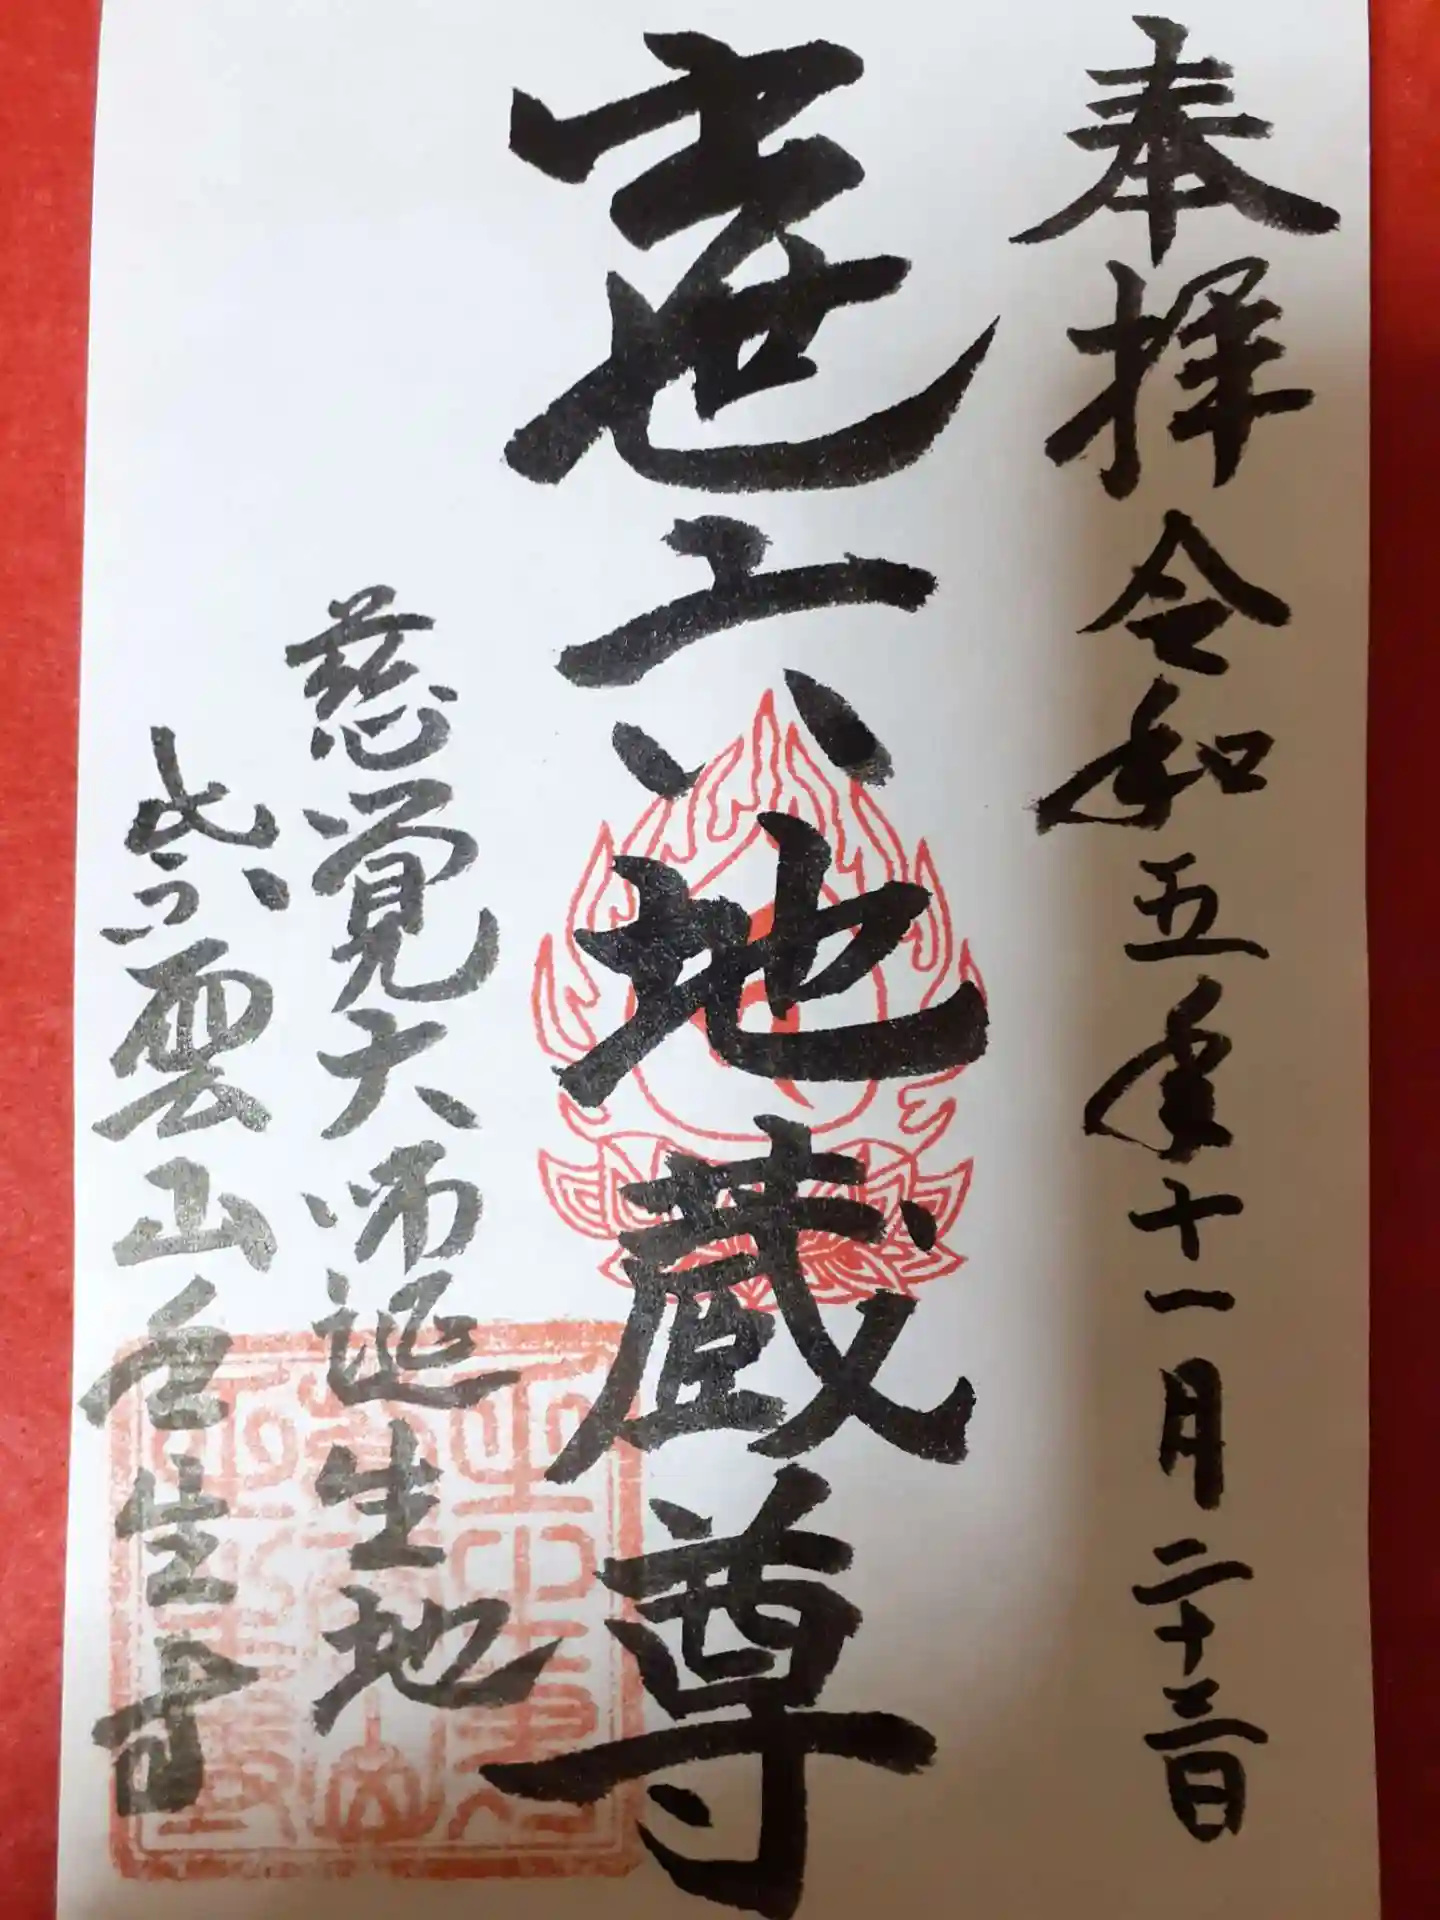 奉拝 令和五年十一月二十三日
六地蔵尊
慈覚大師誕生地
紫雲山壬生寺